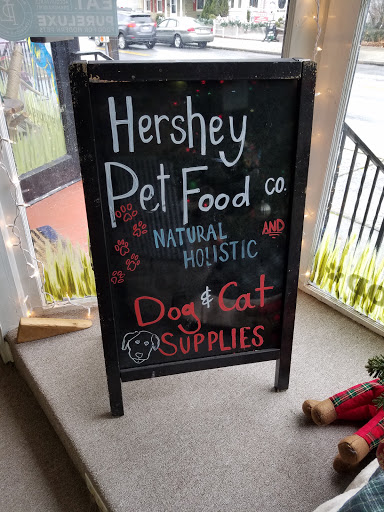 EAT
PURELUXE
Hershey
Pet Food CO.
NATURAL AND
HOLISTIC
Dog & Cat
SUPPLIES